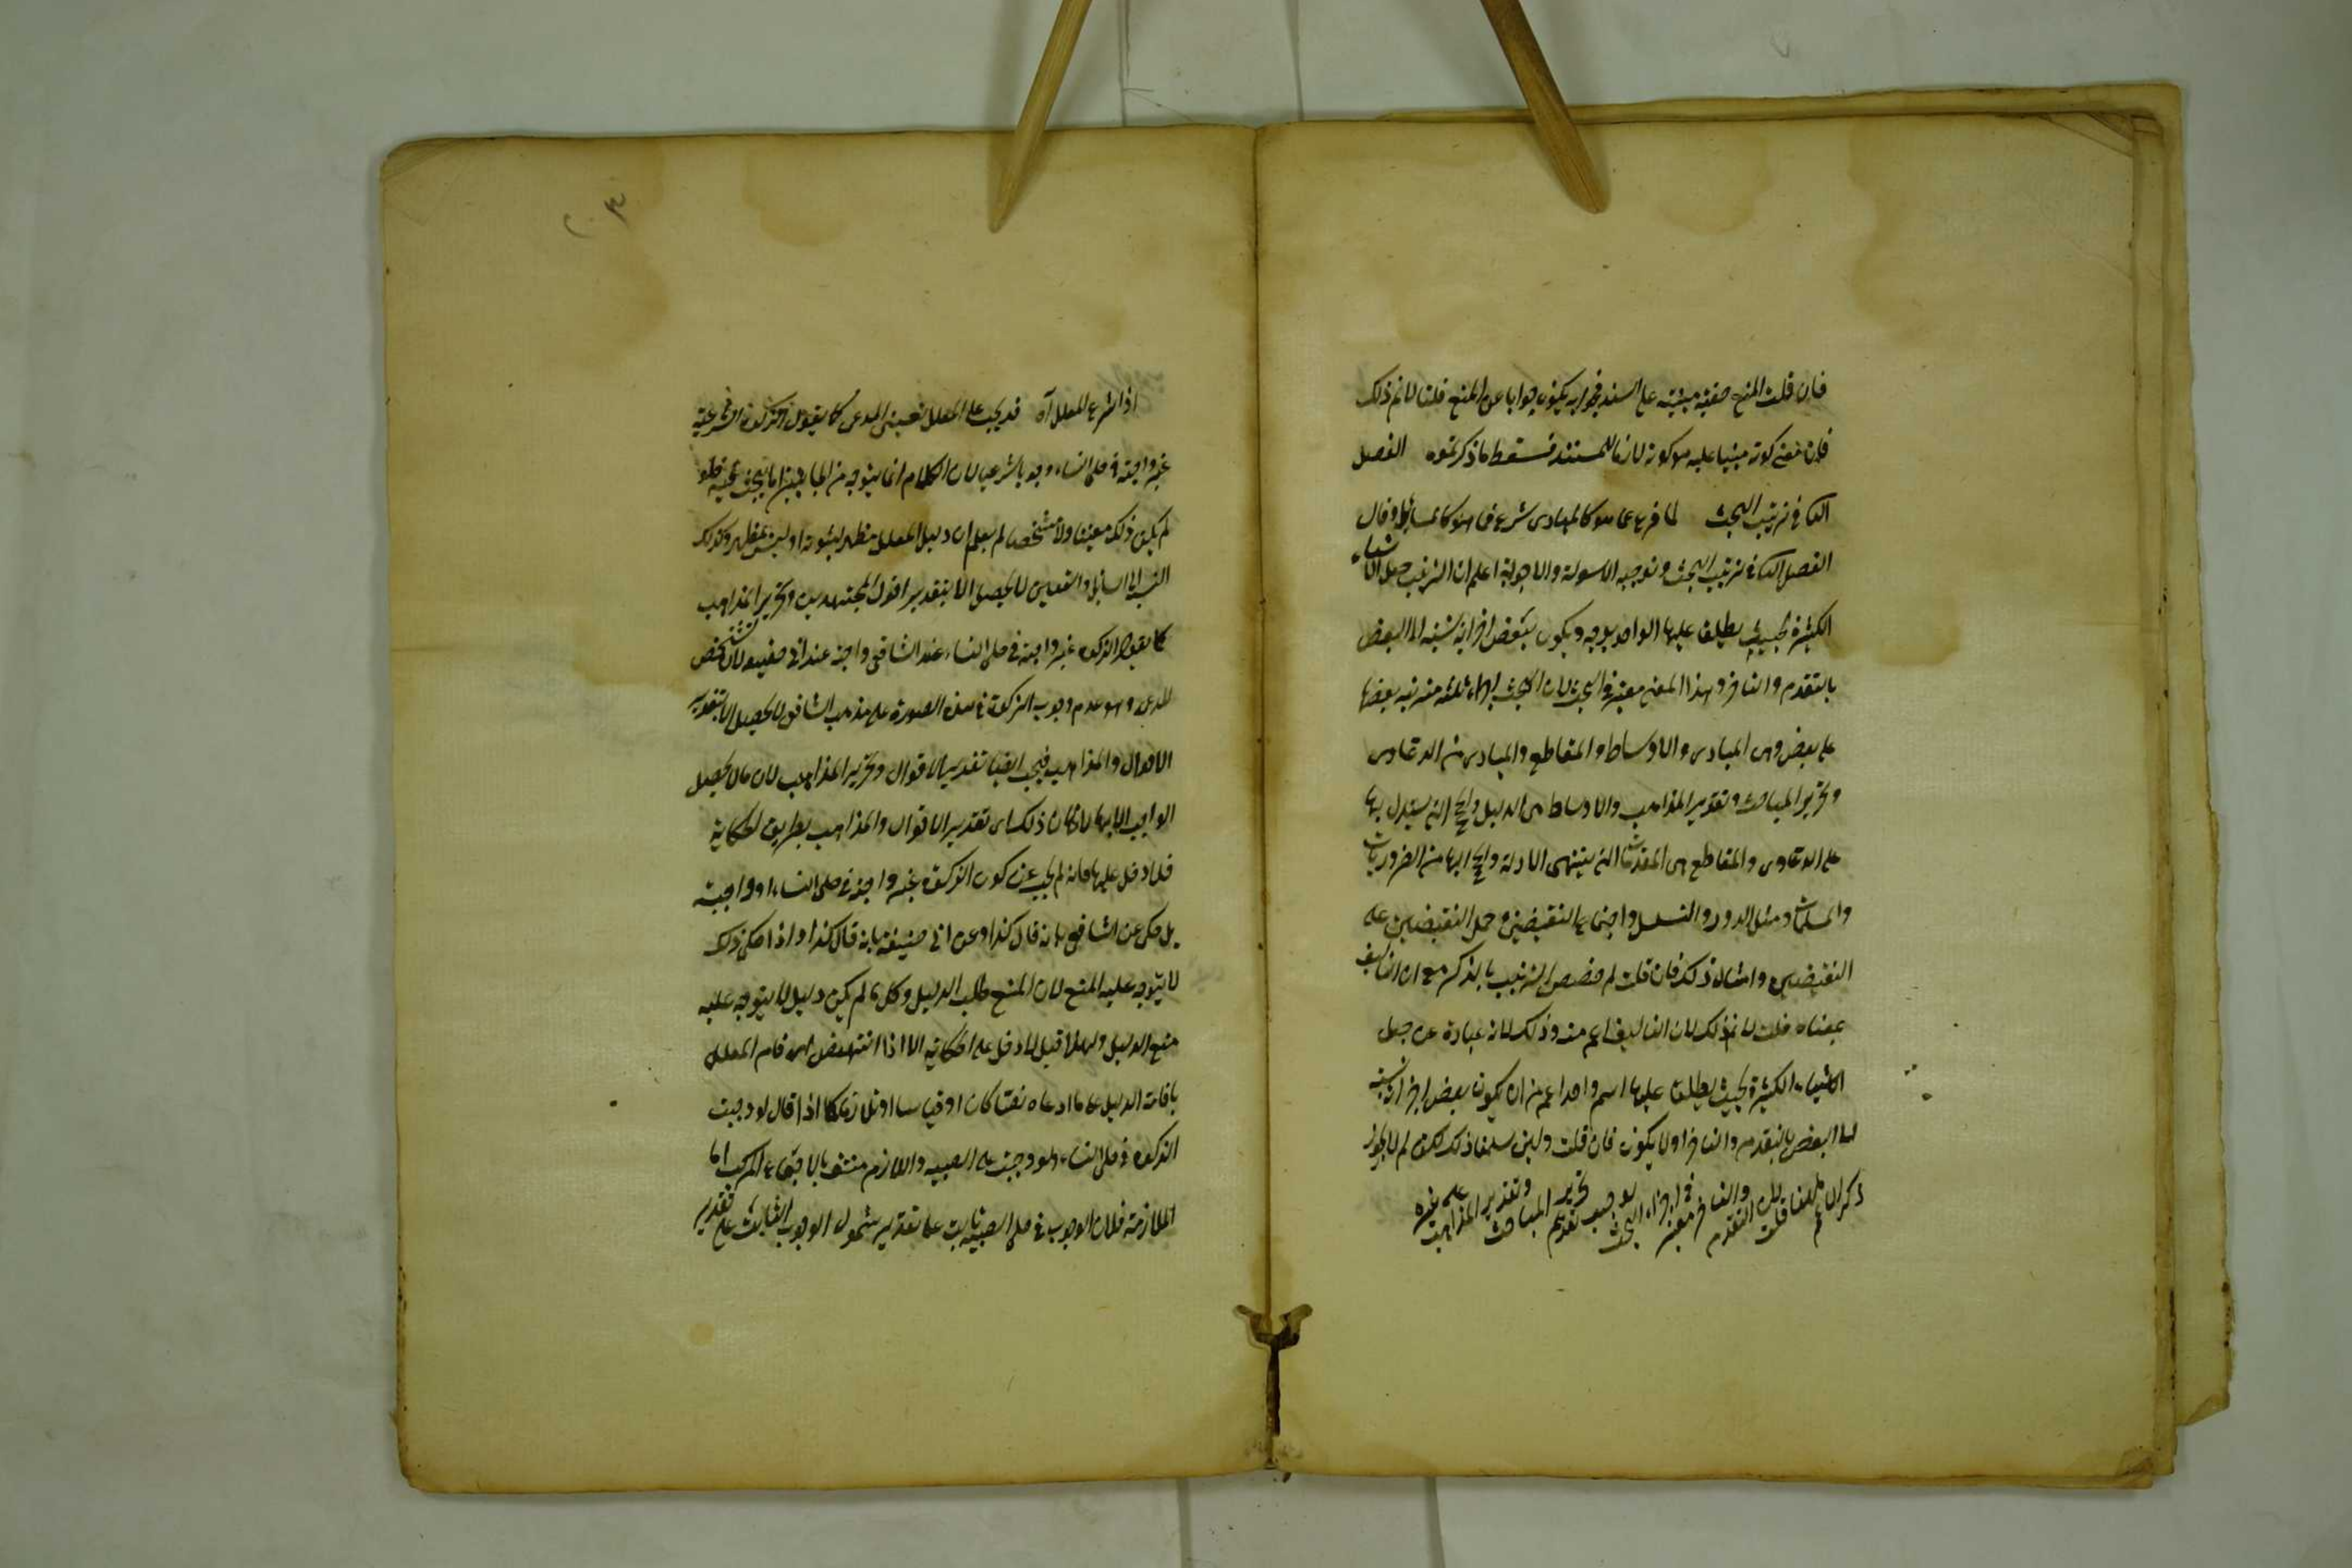 فان قلت المنع صفته مبنية على السند فجوابه يكون جوابا عن المنع قلنا لا نم ذلك
فان معنى كونه مبنيا عليه هو كونه لازما للمستند فسقط ما ذكرتموه الفصل
الثانى فى ترتيب البحث لما فرغ عما هو كالمبادى شرع فيما هو كالمسائل وقال
الفصل الثانى فى ترتيب البحث وتوجيه الاسولة والاجوبة اعلم ان الترتيب جعل الاشياء
الكثيرة بحيث يطلق عليها الواحد بوجه ويكون لبعض اجزائه نسبة الى البعض
بالتقدم والتاخر وهذا المعنى معتبر فى البحث لان البحث اجزاء ثلثة مترتبة بعضها
على بعض وهى المبادى والاوساط والمقاطع والمبادى من الدعاوى
وتحرير المباحث وتقرير المذاهب والاوساط هى الدليل والحجج التى يستدل بها
على الدعاوى والمقاطع هى المقدمات التى ينتهى الادلة والحجج اليها من الضروريات
والمسلمات ومثل الدور والتسلسل واجتماع النقيضين وحمل النقيضين على
النقيضين وامثال ذلك فان قلت لم خصص الترتيب بالذكر مع ان التاليف
بمعناه قلت لا نم ذلك لان التاليف اعم منه وذلك لانه عبارة عن جعل
الاشياء الكثيرة بحيث يطلق عليها اسم واحد اعم من ان يكون لبعض اجزائه نسبة
الى البعض بالتقدم والتاخر او لا يكون فان قلت ولئن سلمنا ذلك لكن لم لا يجوز
ذكر الاعم ههنا قلت لان التقدم والتاخر معتبر فى اجزاء البحث لوجوب تقديم تحرير المباحث وتقرير المذاهب على غيره
اذا شرع المعلل آه قد يجب على المعلل تعيين المدعى كما يقول الزكوة الشرعية
غير واجبة فى حلى النساء وجوبا شرعيا لان الكلام انما يتوجه من الجانبين اما بحث بحيث فلو
لم يكن ذلك معينا ولا مشخصا لم يعلم ان دليل المعلل مظهر لثبوته او ليس بمظهر وكذلك
النسبة الى السائل والتعيين لا يحصل الا بتقدير اقوال المجتهدين وتحرير المذاهب
كما يقول الزكوة غير واجبة فى حلى النساء عند الشافعى واجبة عند ابى حنيفة لان تشخص
المدعى وهو عدم وجوب الزكوة فى هذه الصورة على مذهب الشافعى لا يحصل الا بتقدير
الاقوال والمذاهب فيجب ايضا تقدير الاقوال وتحرير المذاهب لان ما لا يحصل
الواجب الا به واذا كان ذلك اى تقدير الاقوال والمذاهب بطريق الحكاية
فلا دخل عليها فانه لم يجب عن كون الزكوة غير واجبة فى حلى النساء او واجبة
بل حكى عن الشافعى بانه قال كذا وعن ابى حنيفة بانه قال كذا واذا حكى ذلك
لا يتوجه عليه المنع لان المنع طلب الدليل وكل ما لم يكن دليلا لا يتوجه عليه
منع الدليل ولهذا قيل لا دخل على الحكاية الا اذا انتهض اى قام المعلل
باقامة الدليل على ما ادعاه نصا كان او قياسا او تلازما كما اذا قال لو وجبت
الزكوة فى حلى النساء لوجبت على الصبية واللازم منتف بالاجماع المركب اما
الملازمة فلان الوجوب فى حلى الصبية ثابت على تقدير شمول الوجوب الثابت على تقدير